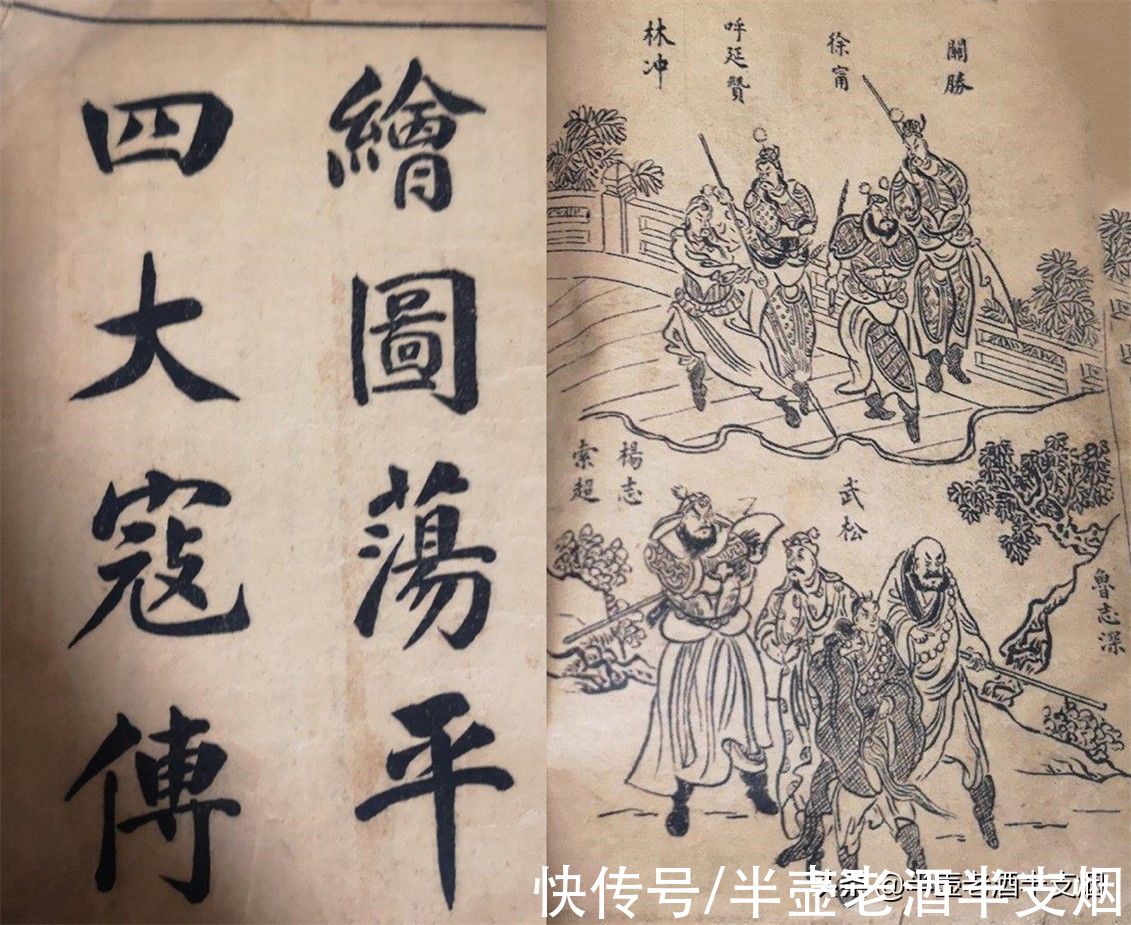 繪圖蕩平
四大寇傳
關勝
徐甯
呼延贊
林冲
楊志
索超
武松
魯志深
快传号/半壶老酒半支烟
头条 @半壶老酒半支烟